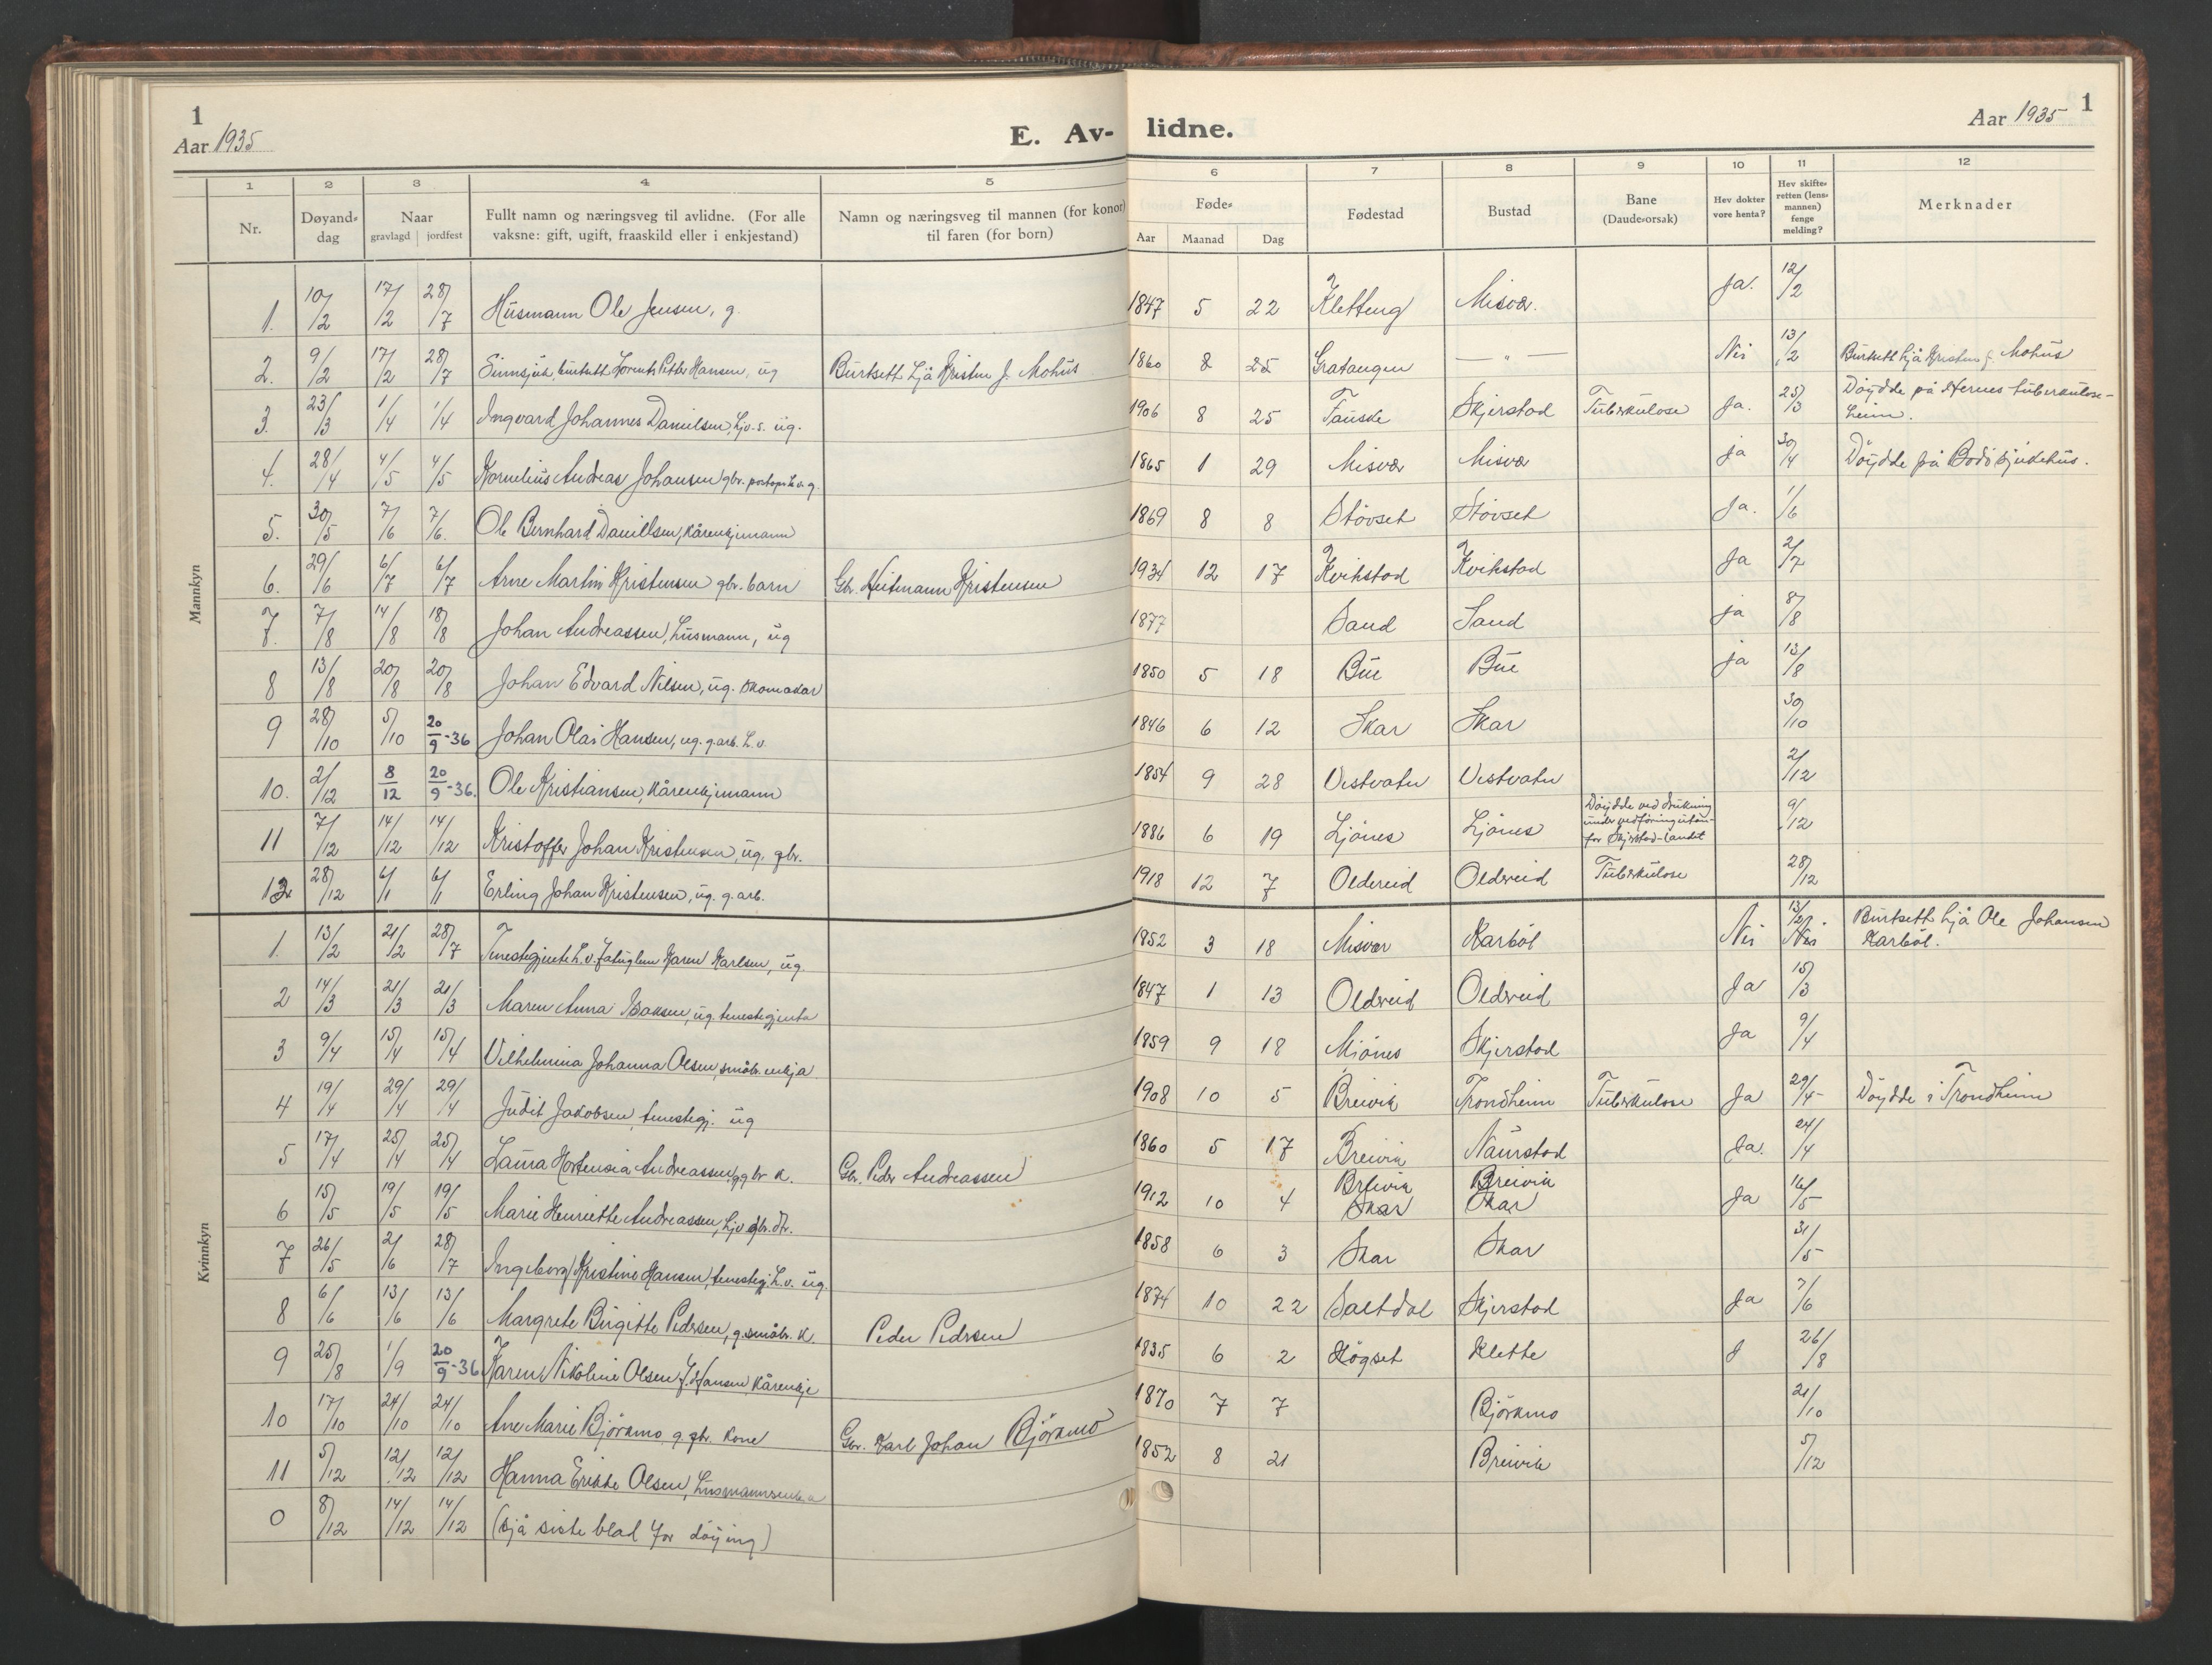 1
Aar 1935
E. Av-
lidne.
Aar 1935
1
1 2 3 4 5 6 7 8 9 10 11 12
Nr.
Døyand-
dag
Naar
gravlagd jordfest
Fullt namn og næringsveg til avlidne. (For alle
vaksne: gift, ugift, fraaskild eller i enkjestand)
Namn og næringsveg til mannen (for konor)
til faren (for born)
Føde-
Aar Maanad Dag
Fødestad
Bustad
Bane
(Daude-orsak)
Hev dokter
vore henta?
Hev skifte-
retten (lens-
mannen)
fenge
melding?
Merknader
Mannkyn
1. 10/2 17/2 28/7 Hüsmann Ole Jensen, g. 1847 5 22 Kletteng Misvær. Ja. 12/2
2. 9/2 17/2 28/7 Sinnsjük, burtsett Lorents Petter Hansen, üg Burtsett hjå Kristen J. Mohüs 1860 8 25 Gratangen — " — Nei 13/2 Burtsett hjå Kristen J. Mohüs
3. 23/3 1/4 1/4 Ingvard Johannes Danielsen, hjv. s. üg. 1906 8 25 Fauske Skjerstad Tüberkülose Ja. 25/3 Döydde på Hernes tüberkülose-
heim.
4. 28/4 4/5 4/5 Kornelius Andreas Johansen gbr. g. 1865 1 29 Misvær Misvær ja 30/4 Döydde på Bodö sjükehüs.
5. 30/5 7/6 7/6. Ole Bernhard Daniellsen, kårenkjemann 1869 8 8 Stövset Stövset Ja. 1/6
6. 29/6 6/7 6/7 Arne Martin Kristensen gbr. barn Gbr. Heitmann Kristensen 1934 12 17 Kvikstad Kvikstad Ja 2/7
7. 7/8 14/8 18/8 Johan Andreassen, hüsmann, üg 1877 Sand Sand ja 8/8
8 13/8 20/8 20/8 Johan Edvard Nilsen, üg. skomakar 1850 5 18 Büe Büe ja 13/8
9 28/10 5/10 20/9-36 Johan Olai Hansen, ug. g.arb. L.v. 1846 6 12 Skar Skar 30/10
10. 2/12 8/12 20/9-36. Ole Kristiansen, kårenkjemann 1854 9 28 Vestvatn Vestvatn 2/12
11 7/12 14/12 14/12 Kristoffer Johan Kristensen, üg. gbr. 1886 6 19 Ljönes Ljönes Döydde ved drükning
ünder vedföring ütan-
for Skjerstad-landet 9/12
12 28/12 6/1 6/1 Erling Johan Kristensen, üg. g.arb. 1918 12 7 Oldereid Oldereid Tüberkülose 28/12
Kvinnkyn
1. 13/2 21/2 28/7 Tenestegjente L.v. Karen Karlsen, üg. 1852 3 18 Misvær Karböl Nei 13/2 Nei Burtsett hjå Ole Johansen
Karböl.
2 14/3 21/3 21/3 Maren Anna Isaksen, üg. tenestegjenta 1847 1 13 Oldereid Oldereid Ja 15/3
3 9/4 15/4 15/4 Vilhelmina Johanna Olsen, småbr. enkja 1859 9 18 Mjönes Skjerstad Ja 9/4
4 19/4 29/4 29/4 Jüdit Jakobsen, tenestegj. üg 1908 10 5 Breivik Trondheim Tüberkülose Ja 29/4 Döydde i Trondheim
5 17/4 25/4 25/4 Laüra Hortensia Andreassen, g gbr k. Gbr. Peder Andreassen 1860 5 17 Breivik Naürstad Ja. 24/4
6 15/5 19/5 19/5 Marie Henriette Andreassen, hjv gbr. dr. 1912 10 4 Breivik Skar Breivik Skar Ja 16/5
7 26/5 2/6 28/7 Ingeborg Kristine Hansen, tenestegj. L.v. üg. 1858 6 3 Skar Skar 31/5
8 6/6 13/6 13/6 Margrete Birgitte Pedersen, g. småbr. k. Peder Pedersen 1874 10 22 Saltdal Skjerstad Ja 7/6
9 25/8 1/9 20/9-36 Karen Nikoline Olsen f. Hansen, kårenkje 1835 6 2 Högset Klette J 26/8
10 17/10 24/10 24/10 Ane Marie Björkmo g. gbr. kone Gbr. Karl Johan Björkmo 1870 7 7 Björkmo 21/10
11 5/12 12/12 12/12 Hanna Erikke Olsen, hüsmannsenka 1852 8 21 Breivik 5/12
0 8/12 14/12 14/12 (sjå siste blad for döying)